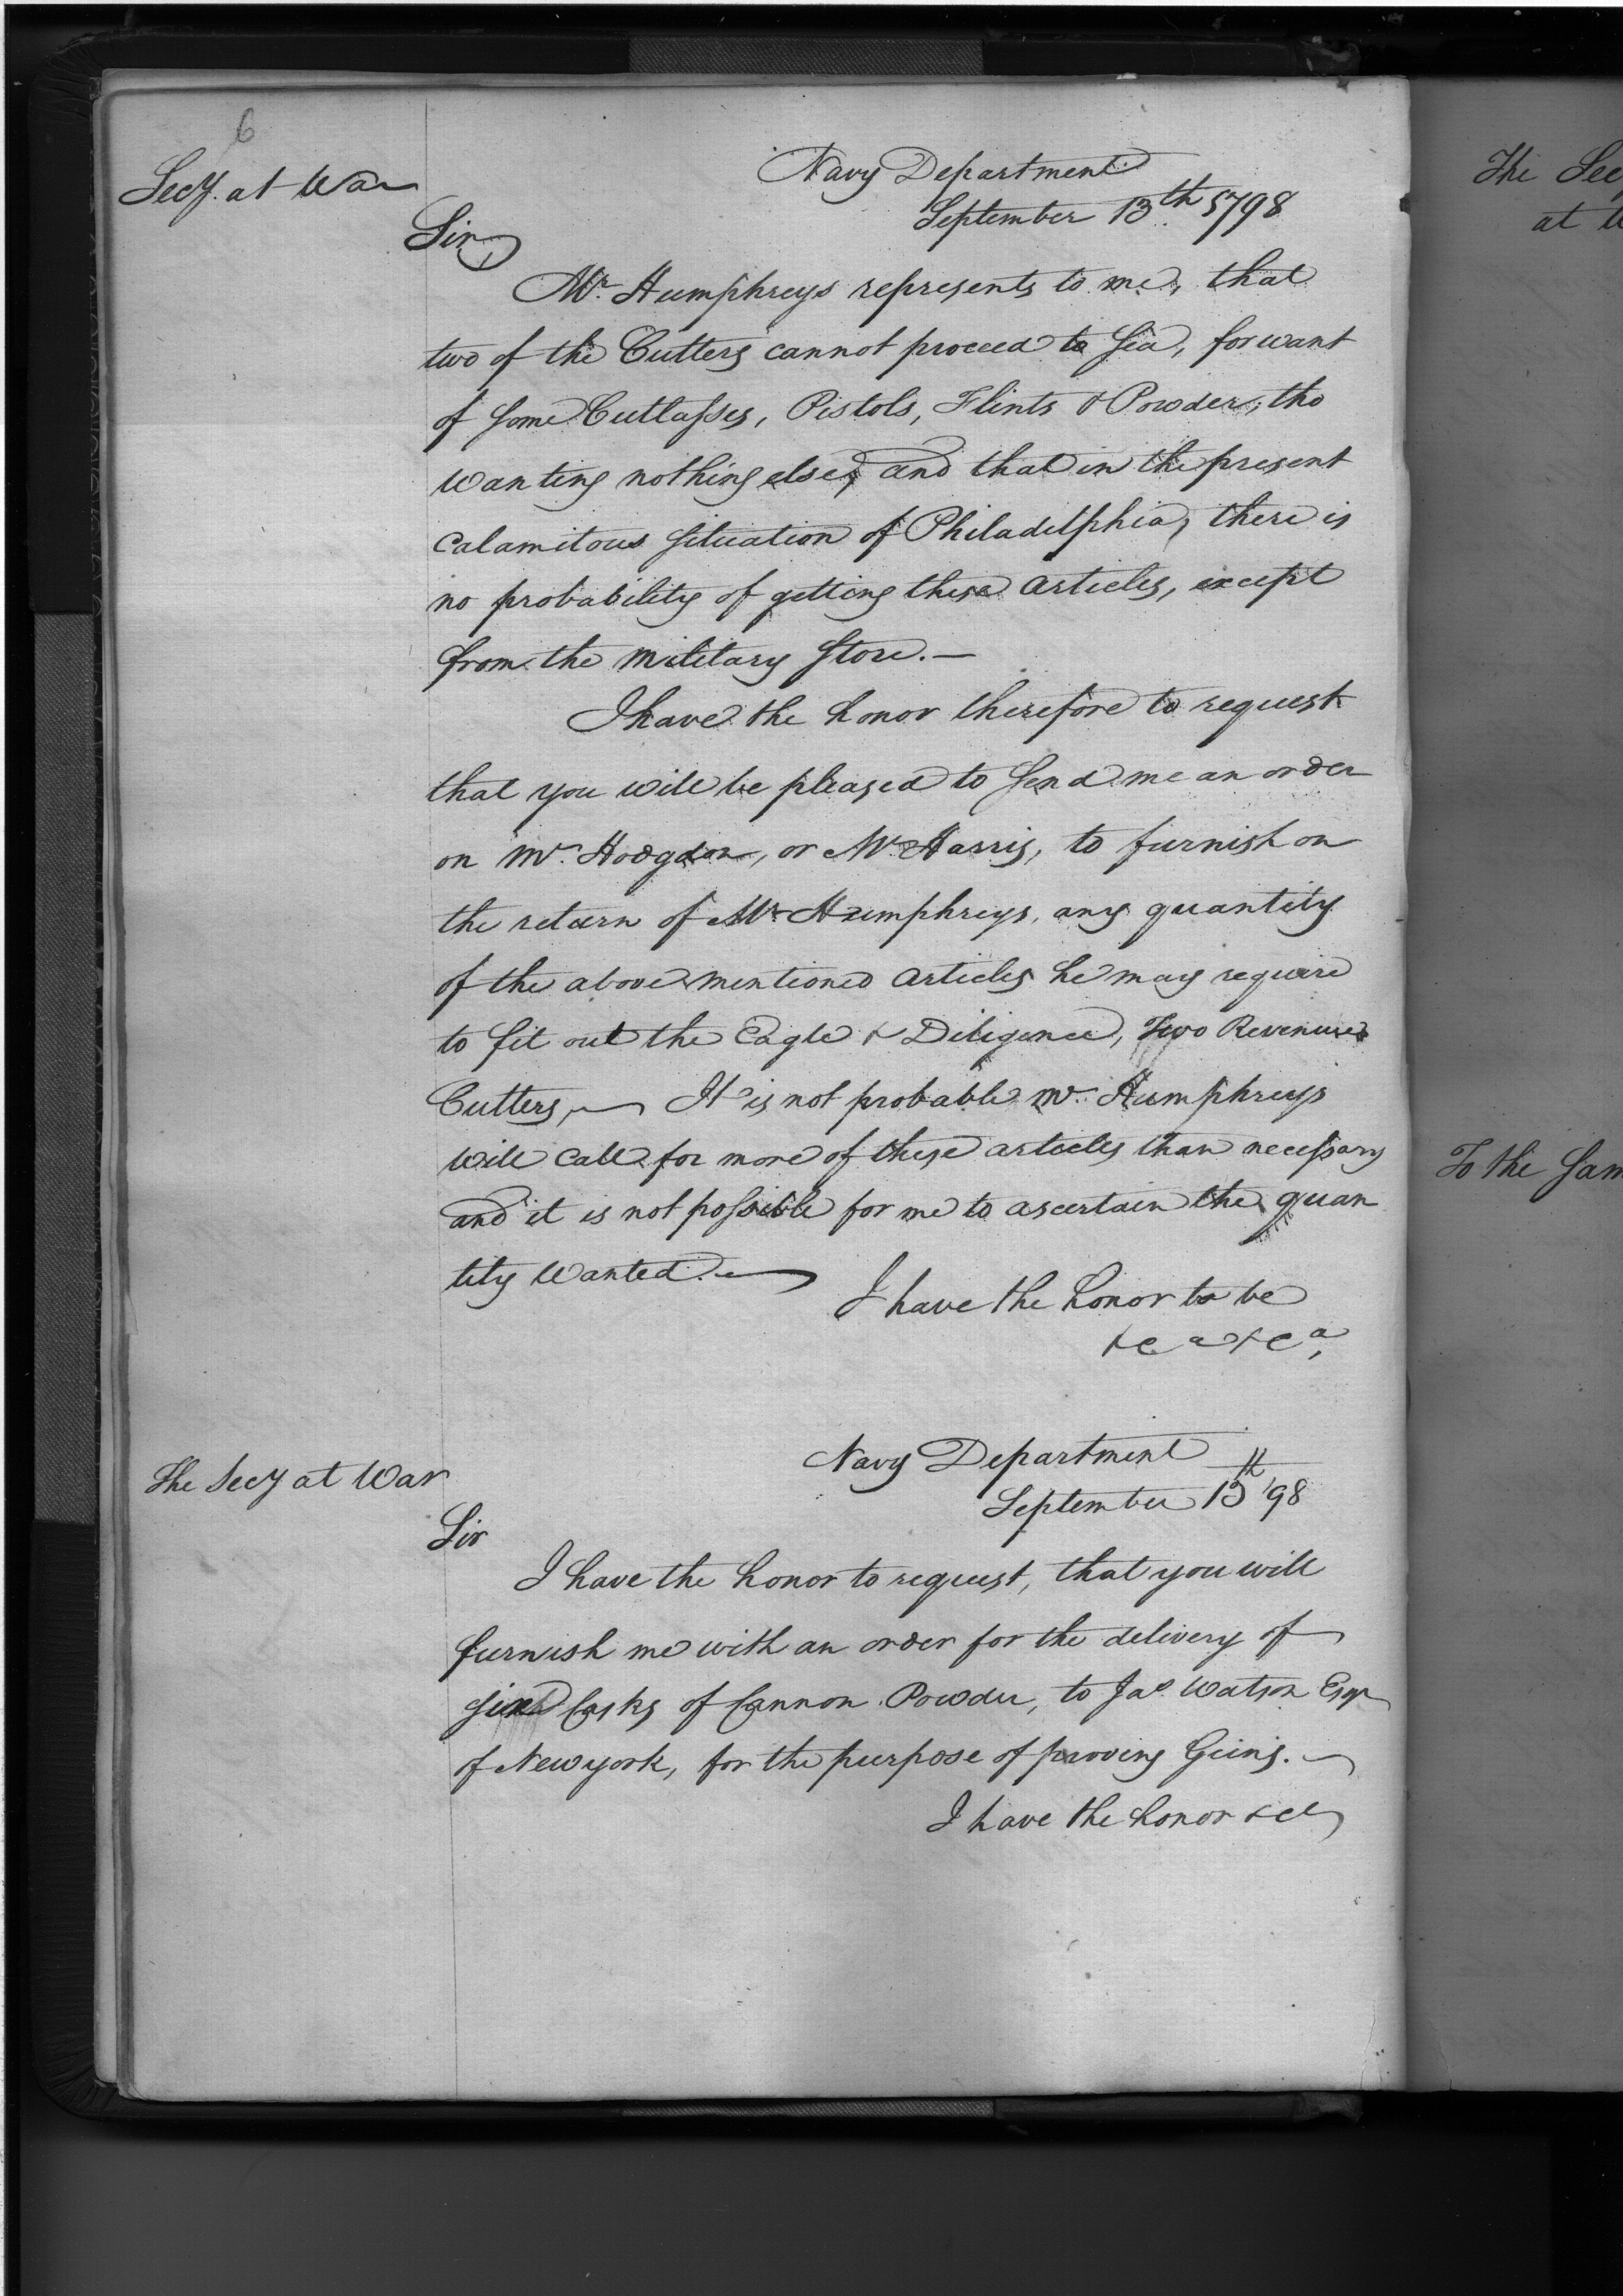 6
Secy. at War
Navy Department
September 13th 1798
Sir,
Mr. Humphreys represents to me, that
two of the Cutters cannot proceed to Sea, for want
of some Cutlasses, Pistols, Flints & Powder, tho
wanting nothing else, and that in the present
calamitous situation of Philadelphia, there is
no probability of getting these articles, except
from the military Store.—
I have the honor therefore to request
that you will be pleased to send me an order
on Mr. Hodgdon, or Mr. Harris, to furnish on
the return of Mr. Humphreys, any quantity
of the above mentioned articles he may require
to fit out the Eagle & Diligence, Two Revenue
Cutters,— It is not probable Mr. Humphreys
will call for more of these articles than necessary
and it is not possible for me to ascertain the quan
tity wanted.—
I have the honor to be
&ca &ca,
The Secy at War
Navy Department
September 13th '98
Sir
I have the honor to request, that you will
furnish me with an order for the delivery of
Casks of Cannon Powder, to Jas. Watson Esqr
of New york, for the purpose of proving Guns.—
I have the honor &c
The Sec
at
To the Sam